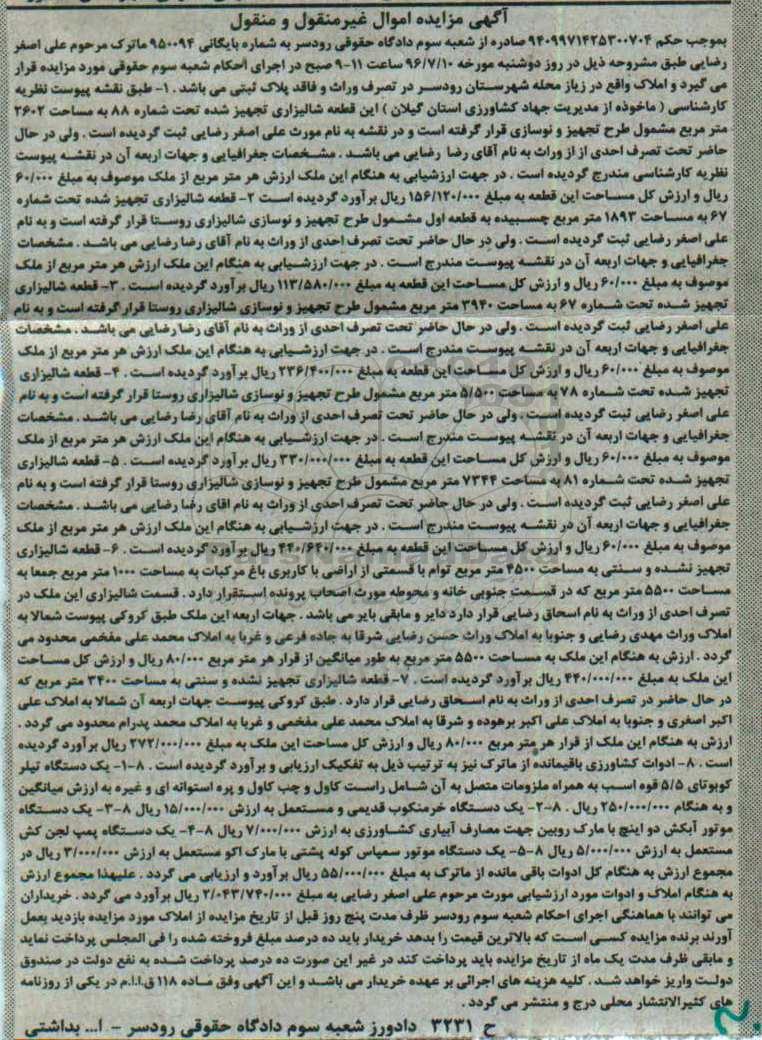 آگهی مزایده اموال غیرمنقول و منقول
بموجب حکم ۹۴۰۹۹۷۱۴۲۵۳۰۰۷۰۴ صادره از شعبه سوم دادگاه حقوقی رودسر به شماره بایگانی ۹۵۰۰۹۴ ماترک مرحوم علی اصغر
رضایی طبق مشروحه ذیل در روز دوشنبه مورخه ۹۶/۷/۱۰ ساعت ۱۱-۹ صبح در اجرای احکام شعبه سوم حقوقی مورد مزایده قرار
می گیرد و املاک واقع در زیاز محله شهرستان رودسر در تصرف وراث و فاقد پلاک ثبتی می باشد . ۱- طبق نقشه پیوست نظریه
کارشناسی ( ماخوذه از مدیریت جهاد کشاورزی استان گیلان ) این قطعه شالیزاری تجهیز شده تحت شماره ۸۸ به مساحت ۲۶۰۲
متر مربع مشمول طرح تجهیز و نوسازی قرار گرفته است و در نقشه به نام مورث علی اصغر رضایی ثبت گردیده است . ولی در حال
حاضر تحت تصرف احدی از از وراث به نام آقای رضا رضایی می باشد . مشخصات جغرافیایی و جهات اربعه آن در نقشه پیوست
نظریه کارشناسی مندرج گردیده است . در جهت ارزشیابی به هنگام این ملک ارزش هر متر مربع از ملک موصوف به مبلغ ۶۰/۰۰۰
ریال و ارزش کل مساحت این قطعه به مبلغ ۱۵۶/۱۲۰/۰۰۰ ریال برآورد گردیده است ۲- قطعه شالیزاری تجهیز شده تحت شماره
۶۷ به مساحت ۱۸۹۳ متر مربع چسبیده به قطعه اول مشمول طرح تجهیز و نوسازی شالیزاری روستا قرار گرفته است و به نام
علی اصغر رضایی ثبت گردیده است . ولی در حال حاضر تحت تصرف احدی از وراث به نام آقای رضا رضایی می باشد . مشخصات
جغرافیایی و جهات اربعه آن در نقشه پیوست مندرج است . در جهت ارزشیابی به هنگام این ملک ارزش هر متر مربع از ملک
موصوف به مبلغ ۶۰/۰۰۰ ریال و ارزش کل مساحت این قطعه به مبلغ ۱۱۳/۵۸۰/۰۰۰ ریال برآورد گردیده است . ۳- قطعه شالیزاری
تجهیز شده تحت شماره ۶۷ به مساحت ۳۹۴۰ متر مربع مشمول طرح تجهیز و نوسازی شالیزاری روستا قرار گرفته است و به نام
علی اصغر رضایی ثبت گردیده است . ولی در حال حاضر تحت تصرف احدی از وراث به نام آقای رضا رضایی می باشد . مشخصات
جغرافیایی و جهات اربعه آن در نقشه پیوست مندرج است . در جهت ارزشیابی به هنگام این ملک ارزش هر متر مربع از ملک
موصوف به مبلغ ۶۰/۰۰۰ ریال و ارزش کل مساحت این قطعه به مبلغ ۲۳۶/۴۰۰/۰۰۰ ریال برآورد گردیده است . ۴- قطعه شالیزاری
تجهیز شده تحت شماره ۷۸ به مساحت ۵/۵۰۰ متر مربع مشمول طرح تجهیز و نوسازی شالیزاری روستا قرار گرفته است و به نام
علی اصغر رضایی ثبت گردیده است . ولی در حال حاضر تحت تصرف احدی از وراث به نام آقای رضا رضایی می باشد . مشخصات
جغرافیایی و جهات اربعه آن در نقشه پیوست مندرج است . در جهت ارزشیابی به هنگام این ملک ارزش هر متر مربع از ملک
موصوف به مبلغ ۶۰/۰۰۰ ریال و ارزش کل مساحت این قطعه به مبلغ ۳۳۰/۰۰۰/۰۰۰ ریال برآورد گردیده است . ۵- قطعه شالیزاری
تجهیز شده تحت شماره ۸۱ به مساحت ۷۳۴۴ متر مربع مشمول طرح تجهیز و نوسازی شالیزاری روستا قرار گرفته است و به نام
علی اصغر رضایی ثبت گردیده است . ولی در حال حاضر تحت تصرف احدی از وراث به نام اقای رضا رضایی می باشد . مشخصات
جغرافیایی و جهات اربعه آن در نقشه پیوست مندرج است . در جهت ارزشیابی به هنگام این ملک ارزش هر متر مربع از ملک
موصوف به مبلغ ۶۰/۰۰۰ ریال و ارزش کل مساحت این قطعه به مبلغ ۴۴۰/۶۴۰/۰۰۰ ریال برآورد گردیده است . ۶- قطعه شالیزاری
تجهیز نشده و سنتی به مساحت ۴۵۰۰ متر مربع توام با قسمتی از اراضی با کاربری باغ مرکبات به مساحت ۱۰۰۰ متر مربع جمعا به
مساحت ۵۵۰۰ متر مربع که در قسمت جنوبی خانه و محوطه مورث اصحاب پرونده استقرار دارد . قسمت شالیزاری این ملک در
تصرف احدی از وراث به نام اسحاق رضایی قرار دارد دایر و مابقی بایر می باشد . جهات اربعه این ملک طبق کروکی پیوست شمالا به
املاک وراث مهدی رضایی و جنوبا به املاک وراث حسن رضایی شرقا به جاده فرعی و غربا به املاک محمد علی مفخمی محدود می
گردد . ارزش به هنگام این ملک به مساحت ۵۵۰۰ متر مربع به طور میانگین از قرار هر متر مربع ۸۰/۰۰۰ ریال و ارزش کل مساحت
این ملک به مبلغ ۴۴۰/۰۰۰/۰۰۰ ریال برآورد گردیده است . ۷- قطعه شالیزاری تجهیز نشده و سنتی به مساحت ۳۴۰۰ متر مربع که
در حال حاضر در تصرف احدی از وراث به نام اسحاق رضایی قرار دارد . طبق کروکی پیوست جهات اربعه آن شمالا به املاک علی
اکبر اصغری و جنوبا به املاک علی اکبر برهوده و شرقا به املاک محمد علی مفخمی و غربا به املاک محمد پدرام محدود می گردد .
ارزش به هنگام این ملک از قرار هر متر مربع ۸۰/۰۰۰ ریال و ارزش کل مساحت این ملک به مبلغ ۲۷۲/۰۰۰/۰۰۰ ریال برآورد گردیده
است . ۸- ادوات کشاورزی باقیمانده از ماترک نیز به ترتیب ذیل به تفکیک ارزیابی و برآورد گردیده است . ۸-۱- یک دستگاه تیلر
کوبوتای ۵/۵ قوه اسب به همراه ملزومات متصل به آن شامل راست کاول و چپ کاول و پره استوانه ای و غیره به ارزش میانگین
و به هنگام ۲۵۰/۰۰۰/۰۰۰ ریال . ۸-۲- یک دستگاه خرمنکوب قدیمی و مستعمل به ارزش ۱۵/۰۰۰/۰۰۰ ریال ۸-۳- یک دستگاه
موتور آبکش دو اینچ با مارک روبین جهت مصارف آبیاری کشاورزی به ارزش ۷/۰۰۰/۰۰۰ ریال ۸-۴- یک دستگاه پمپ لجن کش
مستعمل به ارزش ۵/۰۰۰/۰۰۰ ریال ۸-۵- یک دستگاه موتور سمپاس کوله پشتی با مارک اکو مستعمل به ارزش ۳/۰۰۰/۰۰۰ ریال در
مجموع ارزش به هنگام کل ادوات باقی مانده از ماترک به مبلغ ۵۵/۰۰۰/۰۰۰ ریال برآورد و ارزیابی می گردد . علیهذا مجموع ارزش
به هنگام املاک و ادوات مورد ارزشیابی مورث مرحوم علی اصغر رضایی به مبلغ ۲/۰۴۳/۷۴۰/۰۰۰ ریال برآورد می گردد . خریداران
می توانند با هماهنگی اجرای احکام شعبه سوم رودسر ظرف مدت پنج روز قبل از تاریخ مزایده از املاک مورد مزایده بازدید بعمل
آورند برنده مزایده کسی است که بالاترین قیمت را بدهد خریدار باید ده درصد مبلغ فروخته شده را فی المجلس پرداخت نماید
و مابقی ظرف مدت یک ماه از تاریخ مزایده باید پرداخت کند در غیر این صورت ده درصد پرداخت شده به نفع دولت در صندوق
دولت واریز خواهد شد . کلیه هزینه های اجرائی بر عهده خریدار می باشد و این آگهی وفق ماده ۱۱۸ ق.ا.ا.م در یکی از روزنامه
های کثیرالانتشار محلی درج و منتشر می گردد .
ح ۳۲۳۱ دادورز شعبه سوم دادگاه حقوقی رودسر - ا... بداشتی